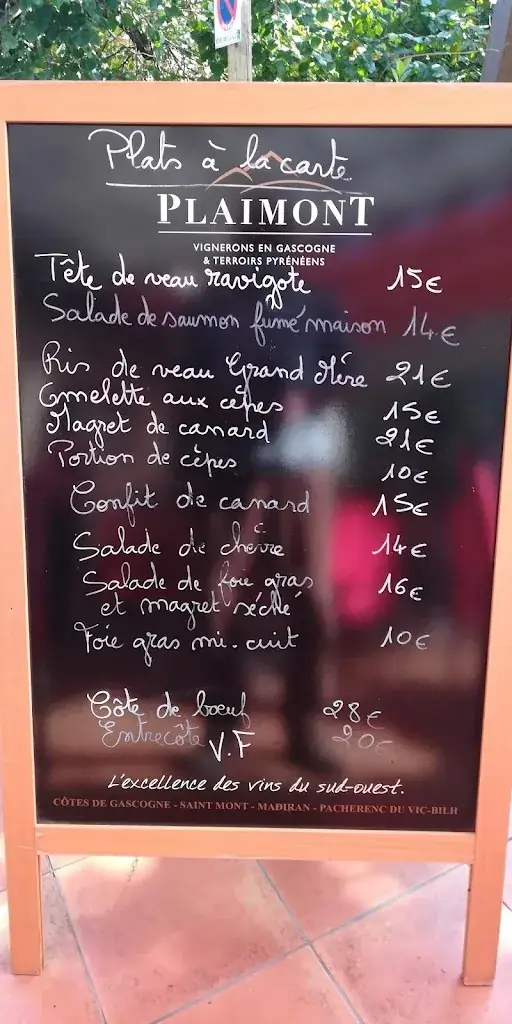 Plats à la carte
PLAIMONT
VIGNERONS EN GASCOGNE
& TERROIRS PYRÉNÉENS
Tête de veau ravigote 15€
Salade de saumon fumé maison 14€
Ris de veau Grand Mère 21€
Omelette aux cèpes 15€
Magret de canard 21€
Portion de cèpes 10€
Confit de canard 15€
Salade de chèvre 14€
Salade de foie gras 16€
et magret séché
Foie gras mi-cuit 10€
Côte de boeuf 28€
Entrecôte V.F 20€
L'excellence des vins du sud-ouest.
CÔTES DE GASCOGNE - SAINT MONT - MADIRAN - PACHERENC DU VIC-BILH